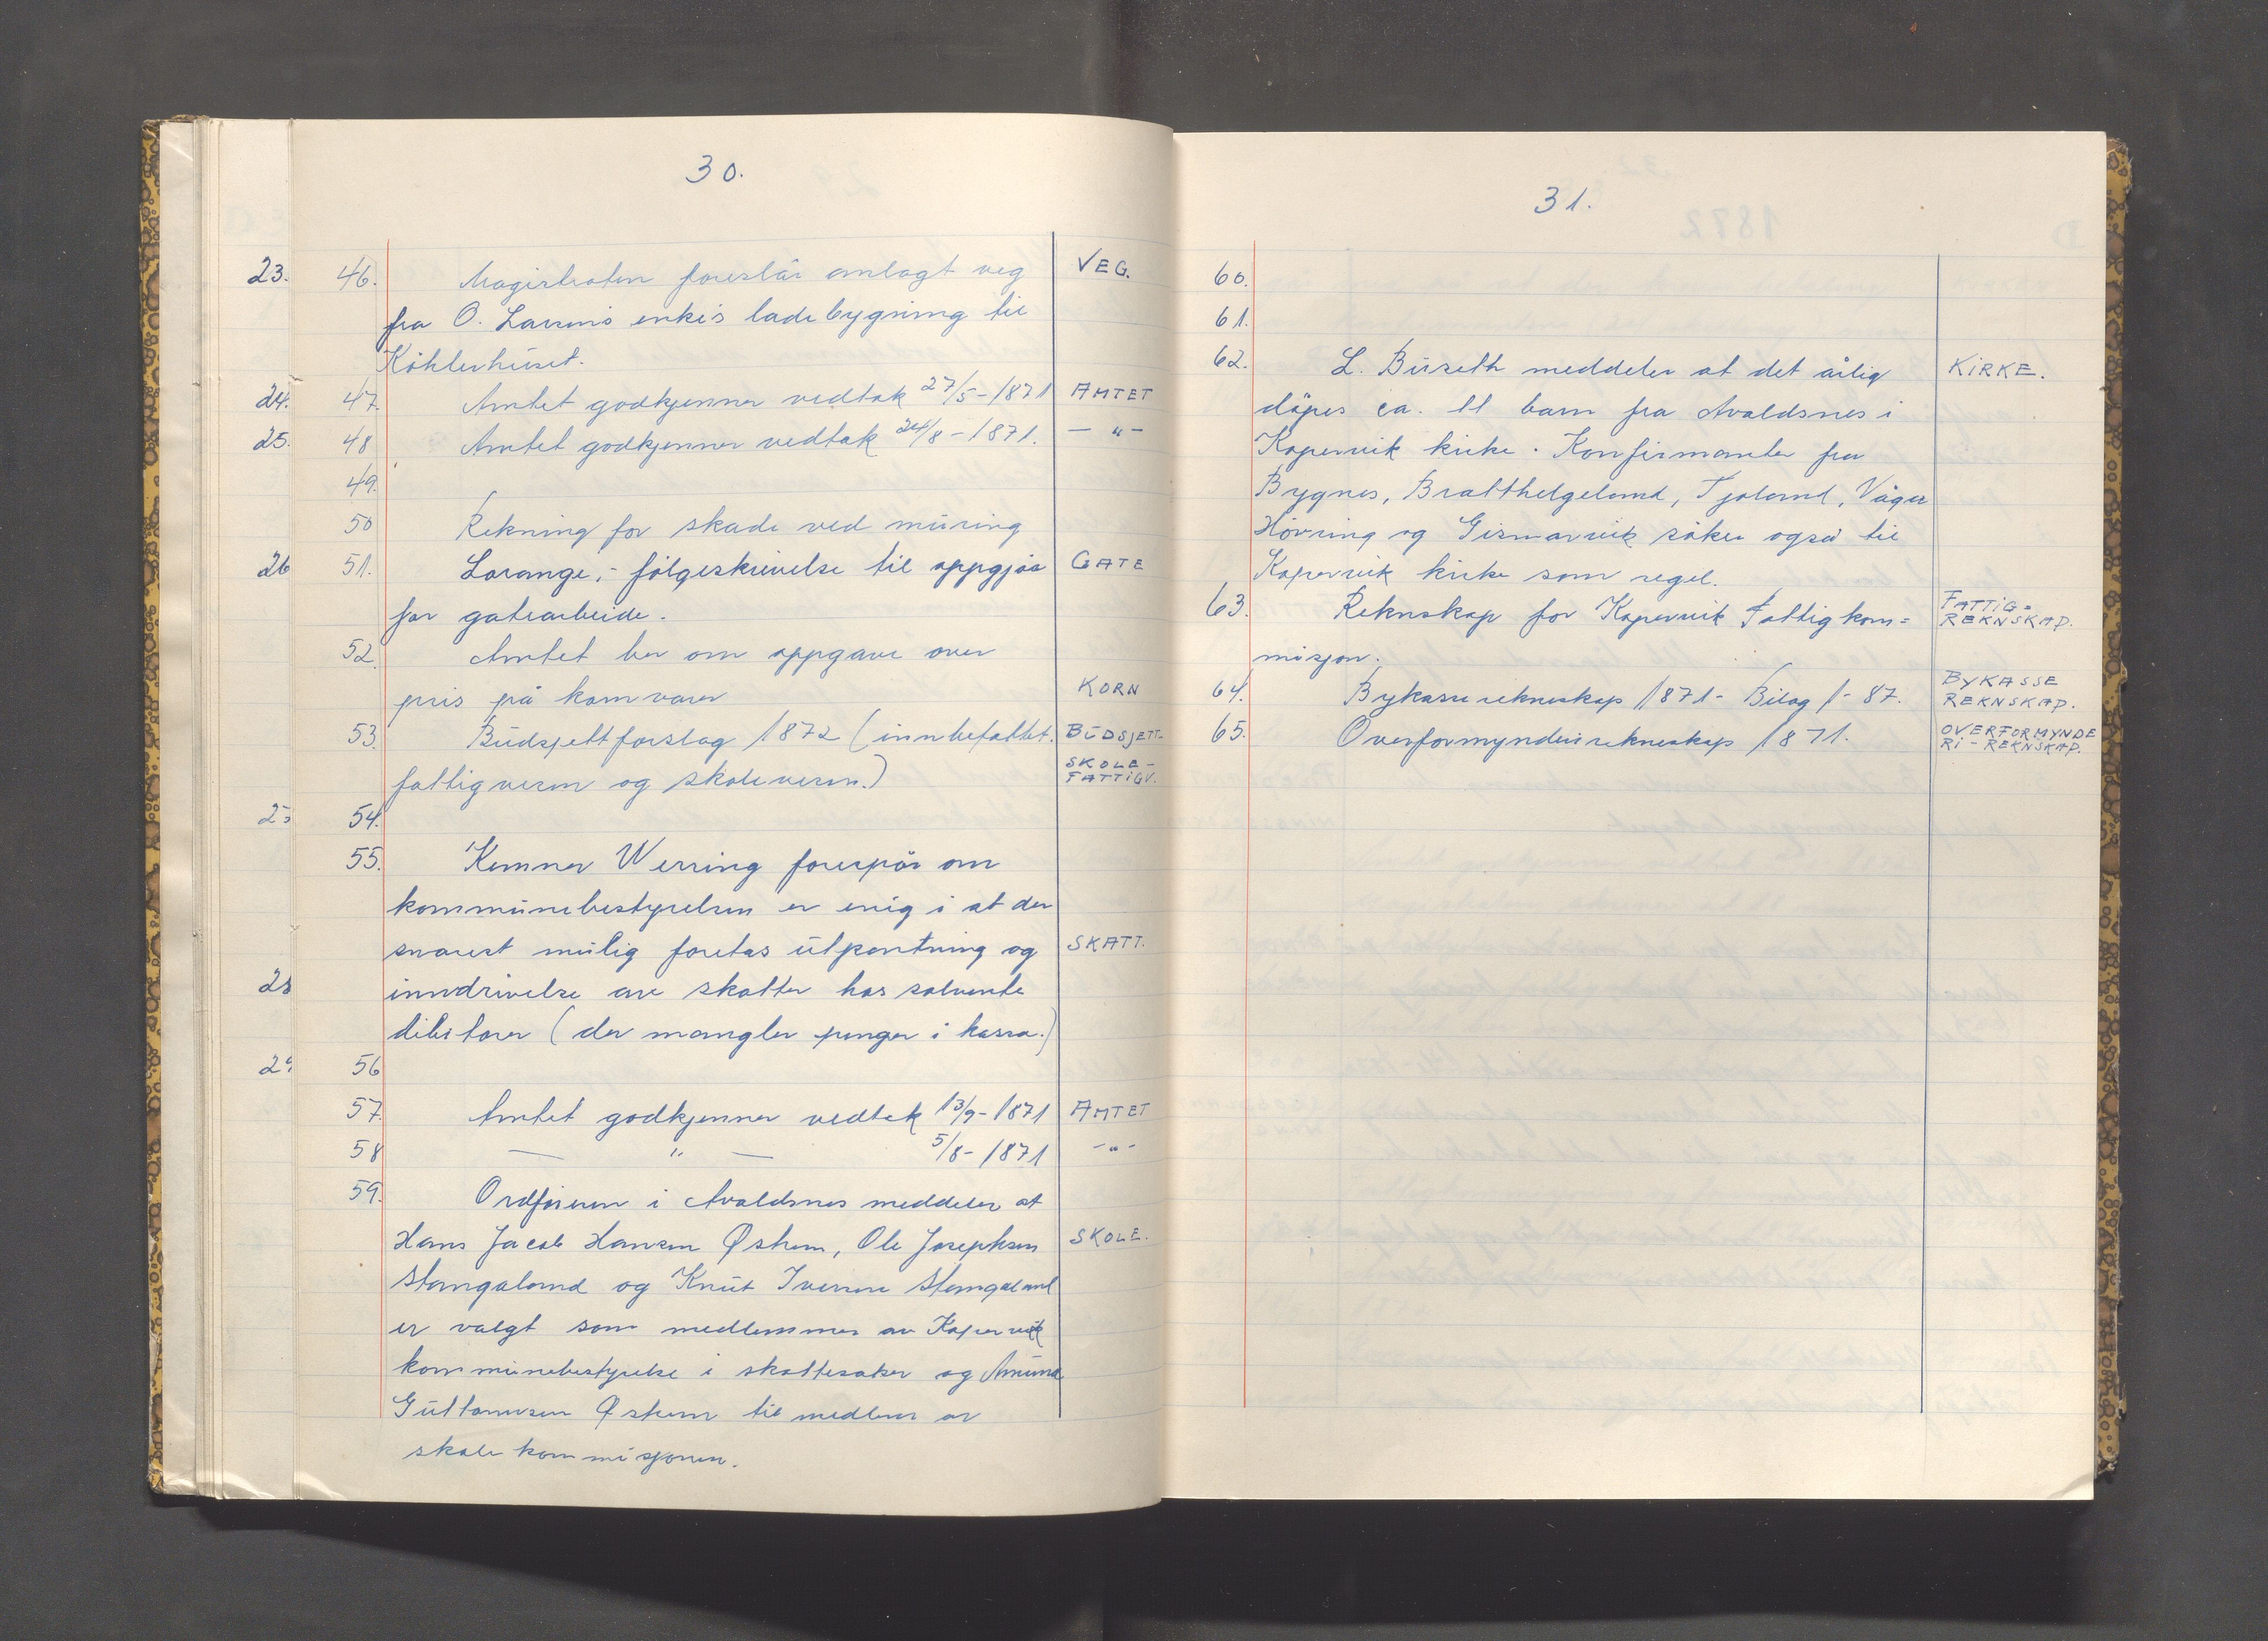 30.
46. Magistraten foreslår omlagt veg VEG.
fra O. Larsens enkes ladebygning til
Köhlerhuset.
47. Amtet godkjenner vedtak 27/5-1871 AMTET
48 Amtet godkjenner vedtak 24/8-1871. — " —
49.
50 Rekning for skade ved muring
51. Lorange,- følgeskrivelse til oppgjør GATE
for gatearbeide.
52. Amtet ber om oppgave over
pris på kornvarer KORN
53. Budsjettforslag 1872 (innbefattet. BUDSJETT-
fattigvesen og skolevesen.) SKOLE-
FATTIGV.
54.
55. Kemner Werring forespør om
kommunebestyrelsen er enig i at der
snarest mulig foretas utpantning og SKATT.
inndrivelse av skatter hos solvente
debitorer (der mangler penger i kassa.)
56
57. Amtet godkjenner vedtak 13/9-1871 AMTET
58 — " — 5/8-1871 - " -
59. Ordføreren i Avaldsnes meddeler at
Hans Jacob Hansen Østrem, Ole Josephsen SKOLE.
Stangaland og Knut Iversen Stangeland
er valgt som medlemmer av Kopervik
kommunebestyrelse i skattesaker og Amund
Guttormsen Østrem til medlem av
skolekommisjonen.
23.
24.
25.
26
28
31.
60.
61.
62. L. Buseth meddeler at det årlig KIRKE.
døpes ca. 11 barn fra Avaldsnes i
Kopervik kirke. Konfirmanter fra
Bygnes, Bratthelgeland, Tjoland, Våga
Høvring og Gismarvik søker også til
Kopervik kirke som regel.
63. Reknskap for Kopervik Fattigkom= FATTIG=
REKNSKAP.
misjon.
64. Bykasserekneskap 1871- Bilag 1-87. BYKASSE
REKNSKAP.
65. Overformynderirekneskap 1871. OVERFORMYNDE
RI-REKNSKAP.